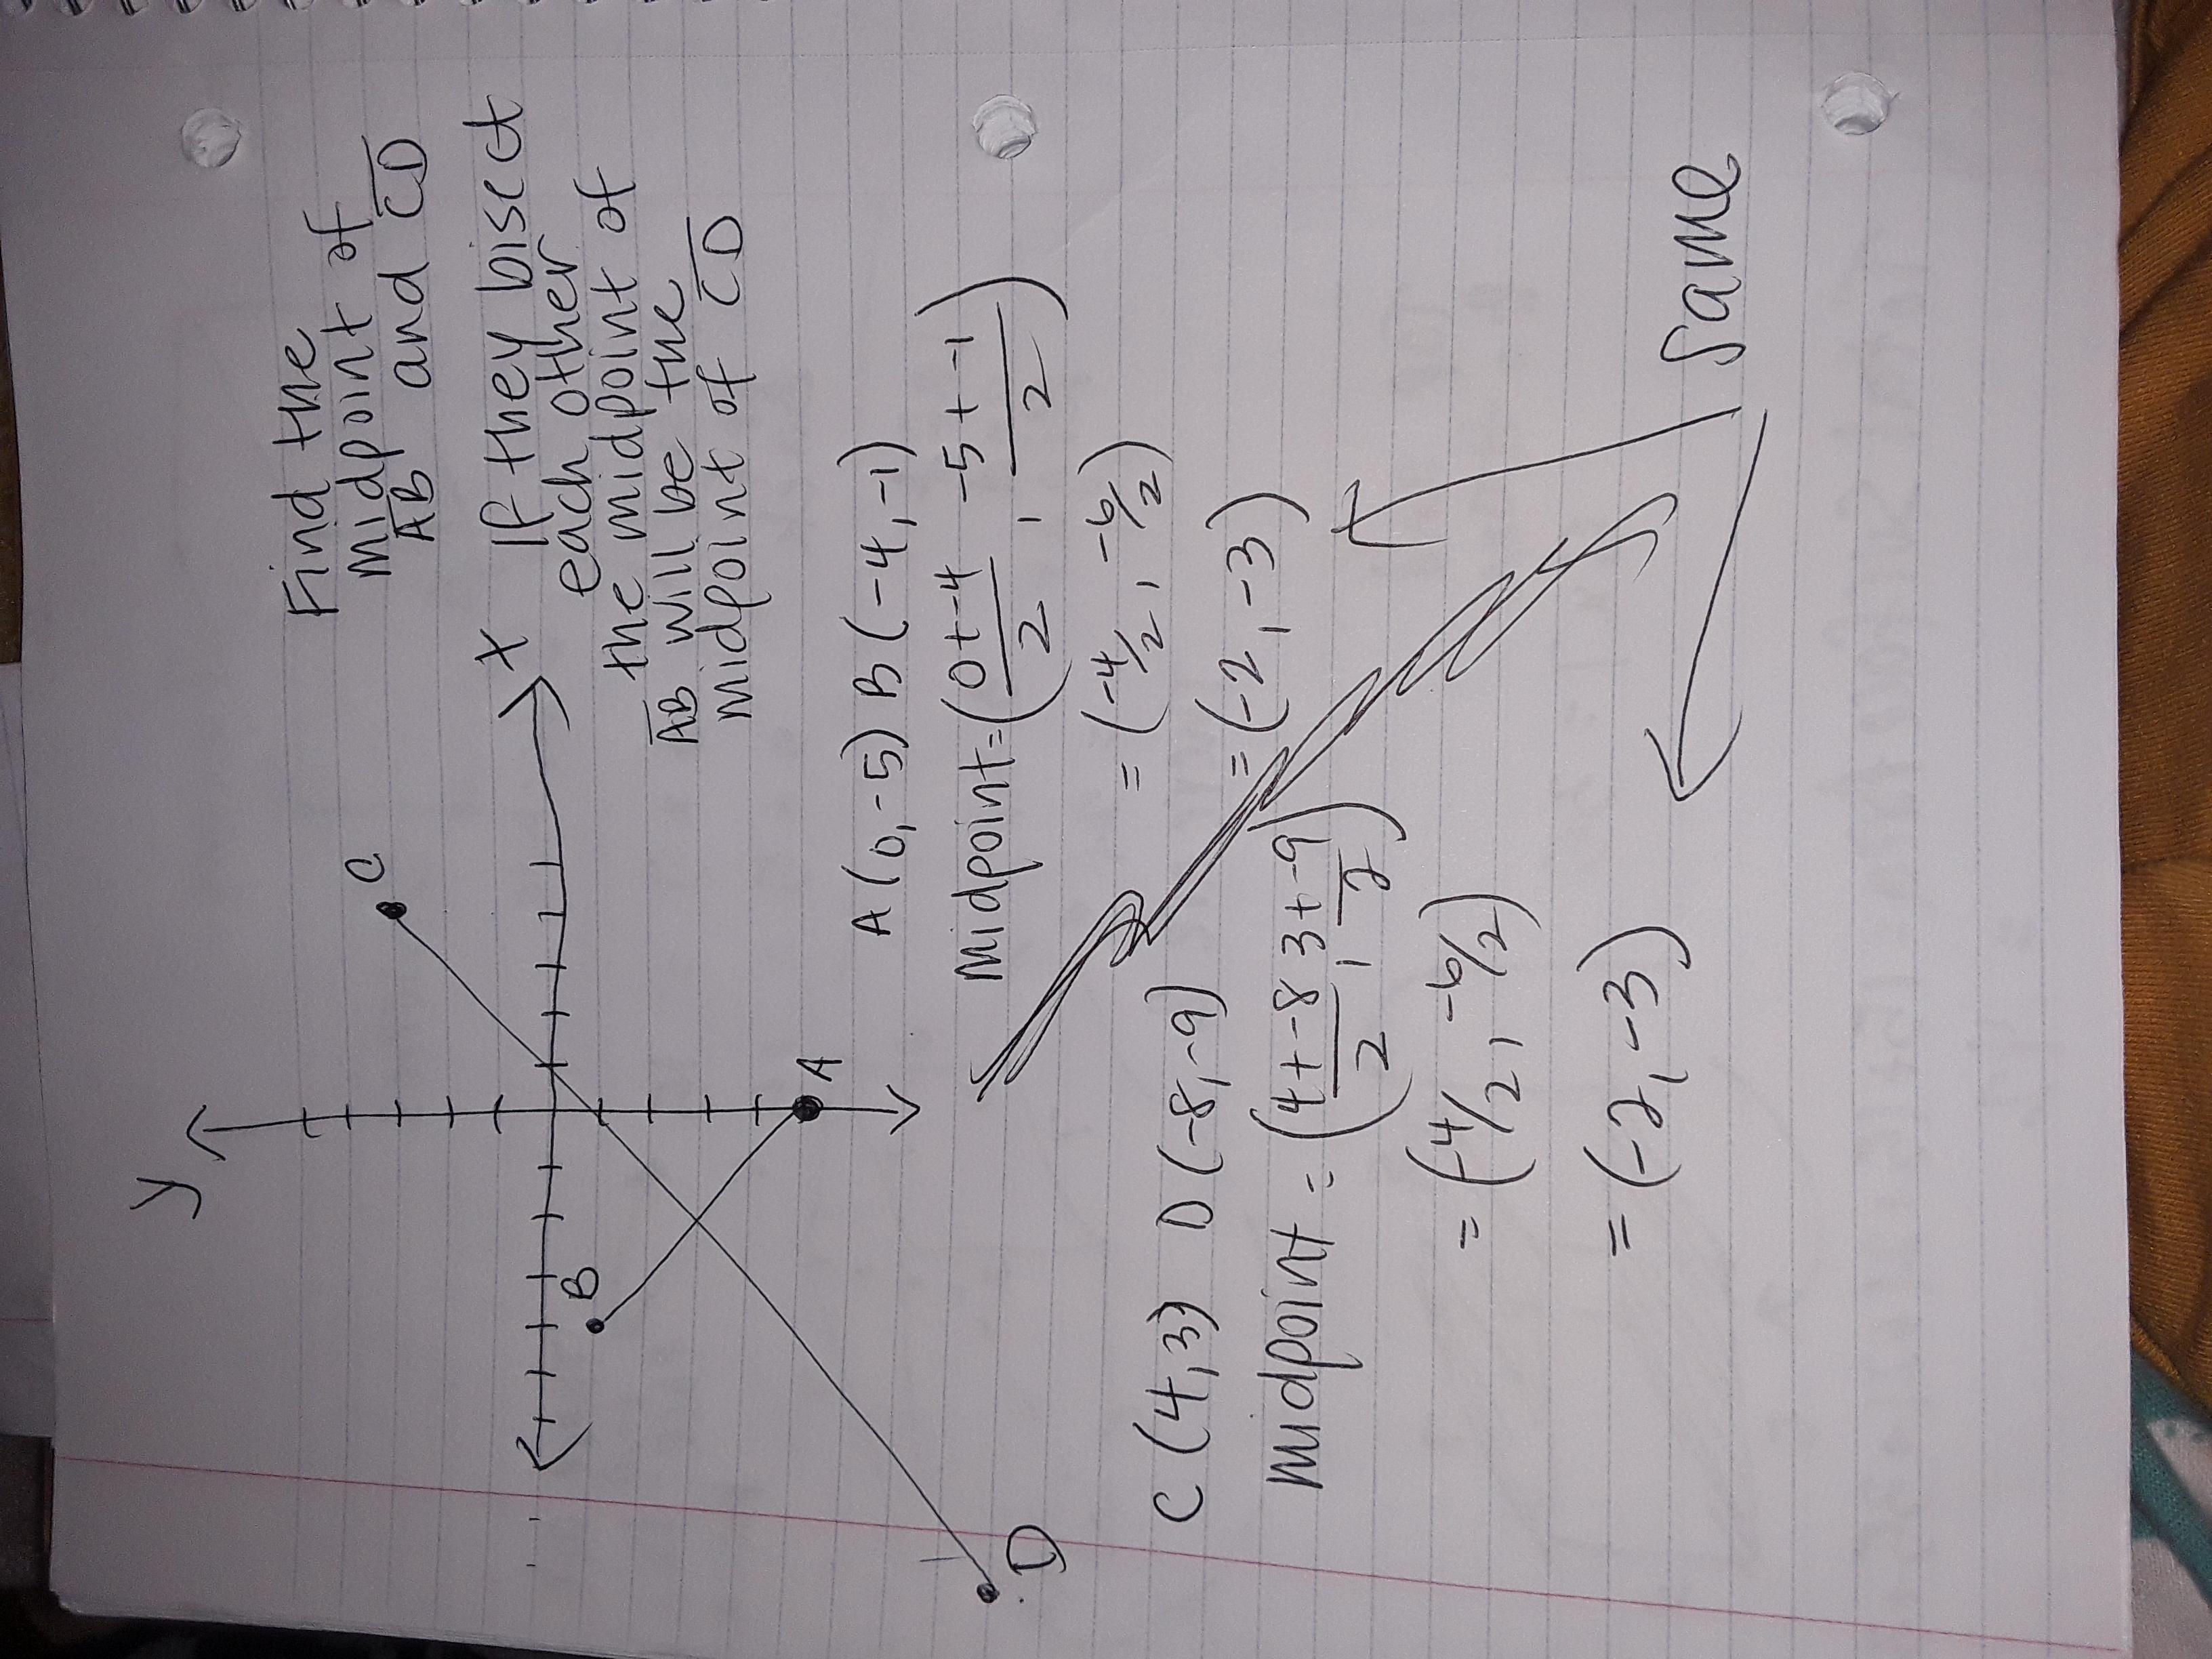 y
Find the
midpoint of
A̅B̅ and C̅D̅
C
X
If they bisect
each other
the midpoint of
A̅B̅ will be the
midpoint of C̅D̅
B
A
D
A(0,-5) B(-4,-1)
midpoint=(0+-4/2, -5+-1/2)
= (-4/2, -6/2)
= (-2, -3)
C(4,3) D(-8,-9)
midpoint = (4+-8/2, 3+-9/2)
= (-4/2, -6/2)
= (-2, -3)
Same